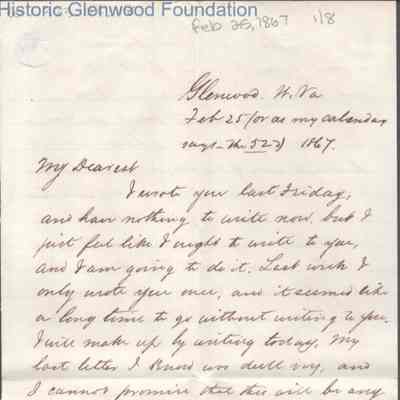 Historic Glenwood Foundation
Feb 25, 1867 1/8
Glenwood. W. Va
Feb 25 (or as my calendar
says - the 52d) 1867.
My Dearest
I wrote you last Friday,
and have nothing to write now, but I
just feel like I ought to write to you,
and I am going to do it. Last week I
only wrote you once, and it seemed like
a long time to go without writing to you.
I will make up by writing today, My
last letter I know was dull very, and
I cannot promise that this will be any